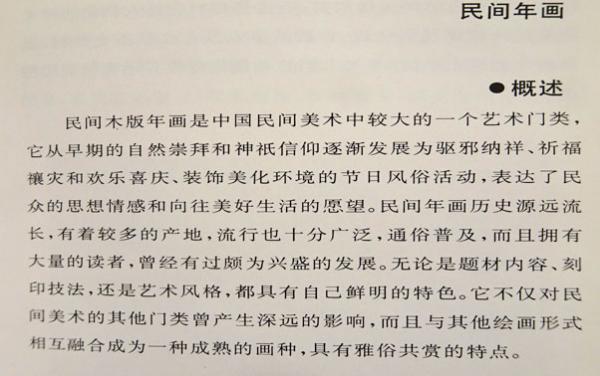 民间年画
●概述
民间木版年画是中国民间美术中较大的一个艺术门类，
它从早期的自然崇拜和神祇信仰逐渐发展为驱邪纳祥、祈福
禳灾和欢乐喜庆、装饰美化环境的节日风俗活动，表达了民
众的思想情感和向往美好生活的愿望。民间年画历史源远流
长，有着较多的产地，流行也十分广泛，通俗普及，而且拥有
大量的读者，曾经有过颇为兴盛的发展。无论是题材内容、刻
印技法，还是艺术风格，都具有自己鲜明的特色。它不仅对民
间美术的其他门类曾产生深远的影响，而且与其他绘画形式
相互融合成为一种成熟的画种，具有雅俗共赏的特点。